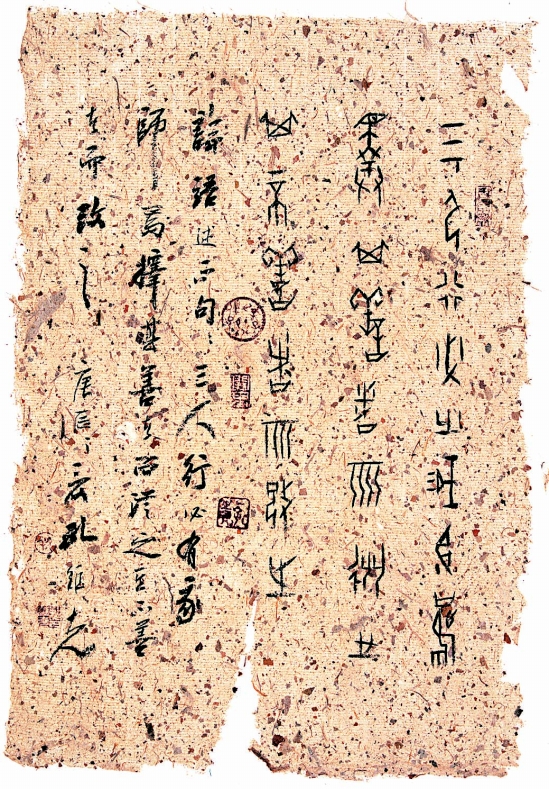 三人行必有我師焉
擇其善者而從之
其不善者而改之
論語述而句三人行必有我
師焉擇其善者而從之其不善
者而改之